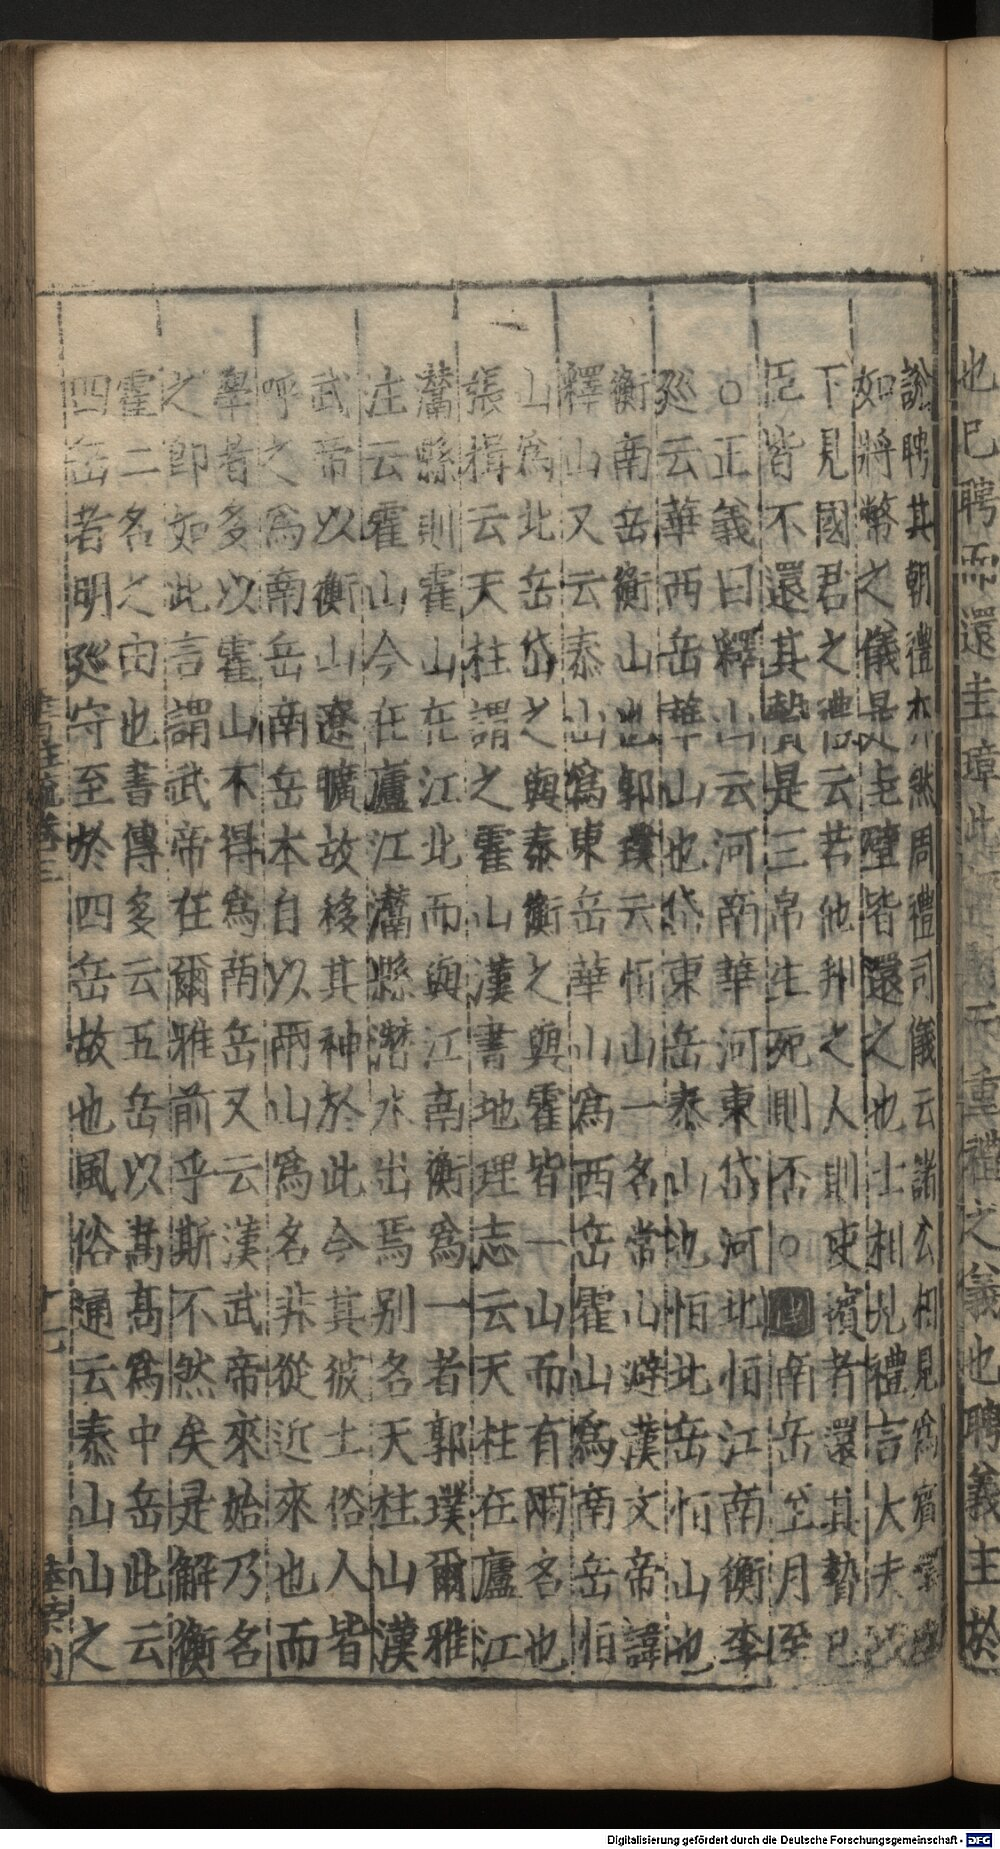 也已聘而還圭璋此示重禮之義也聘義主於
說聘其朝禮亦然周禮司儀云諸公相見爲賓還
如將幣之儀是圭璧皆還之也士相見禮言大夫以
下見國君之禮云若他邦之人則使擯者還其贄已
臣皆不還其贄是三帛生死則否○疏南岳至月至
○正義曰釋山云河南華河東岱河北恒江南衡李
廵云華西岳華山也岱東岳泰山也恒北岳恒山也
衡南岳衡山也郭璞云恒山一名常山避漢文帝諱
釋山又云泰山爲東岳華山爲西岳霍山爲南岳恒
山爲北岳岱之與泰衡之與霍皆一山而有兩名也
張揖云天柱謂之霍山漢書地理志云天柱在廬江
灊縣則霍山在江北而與江南衡爲一者郭璞爾雅
注云霍山今在廬江灊縣潛水出焉别名天柱山漢
武帝以衡山遼曠故移其神於此今其彼土俗人皆
呼之爲南岳南岳本自以兩山爲名非從近來也而
學者多以霍山不得爲南岳又云漢武帝來始乃名
之即如此言謂武帝在爾雅前乎斯不然矣是解衡
霍二名之由也書傳多云五岳以嵩高爲中岳此云
四岳者明廵守至於四岳故也風俗通云泰山山之
書註疏卷三
十七
Digitalisierung gefördert durch die Deutsche Forschungsgemeinschaft - DFG